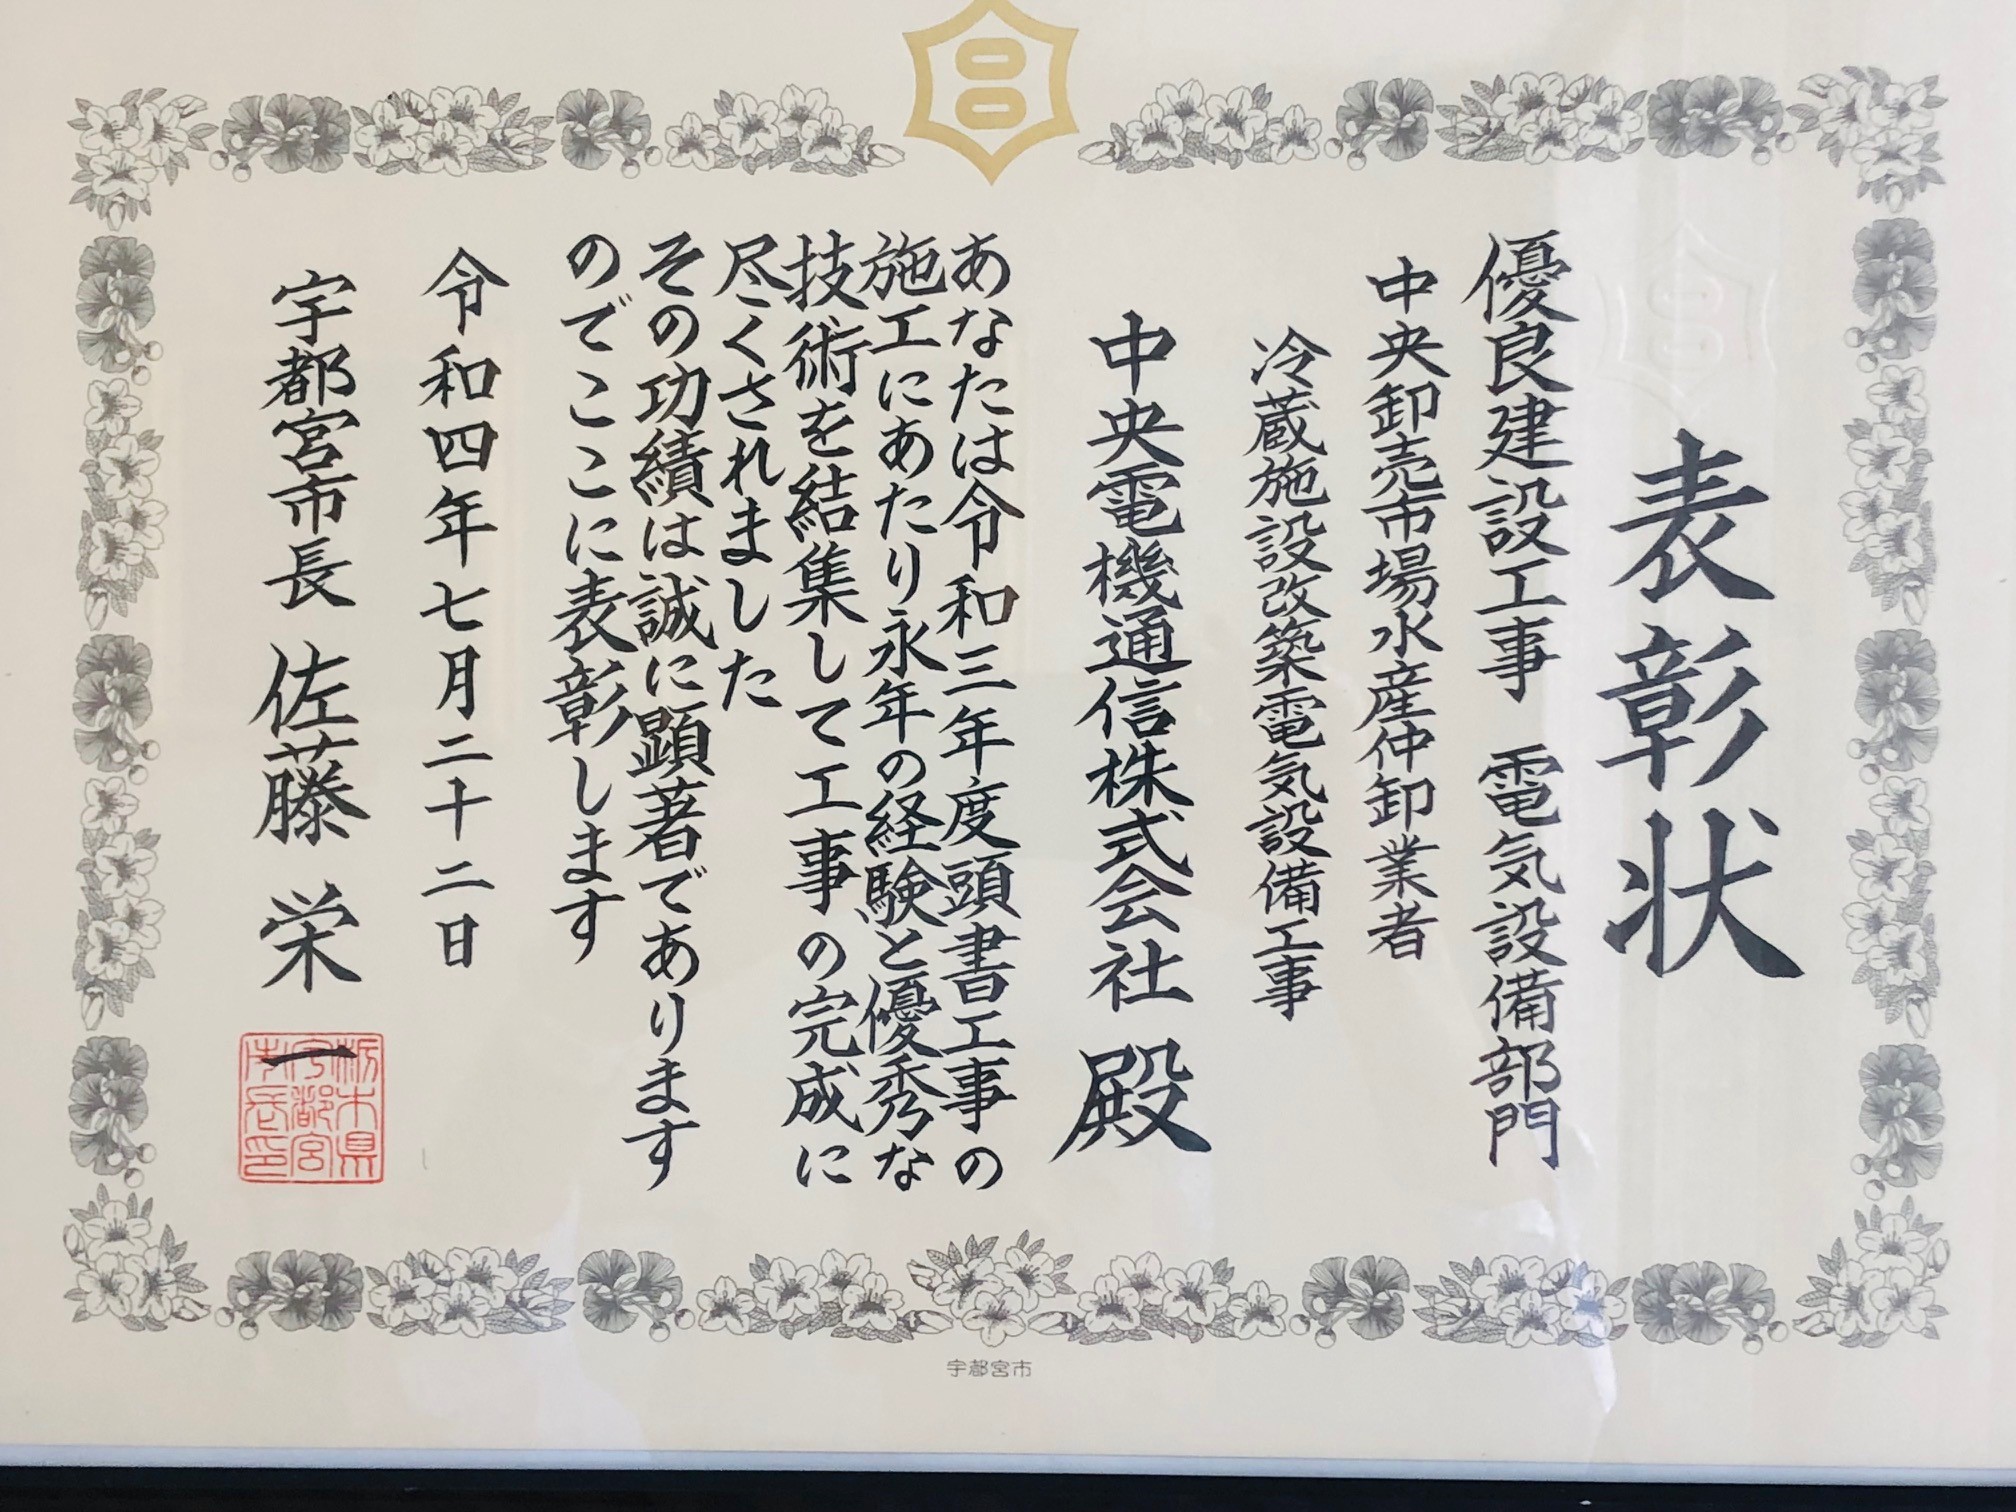 表彰状
優良建設工事　電気設備部門
中央卸売市場水産仲卸業者
冷蔵施設改築電気設備工事
中央電機通信株式会社　殿
あなたは令和三年度頭書工事の
施工にあたり永年の経験と優秀な
技術を結集して工事の完成に
尽くされました
その功績は誠に顕著であります
のでここに表彰します
令和四年七月二十二日
宇都宮市長　佐藤　栄一
栃木県
宇都宮
市長印
宇都宮市